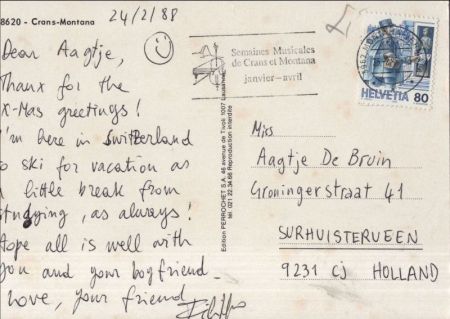 8620 - Crans-Montana
24/2/88
Dear Aagtje,
Thanx for the
X-Mas greetings!
I'm here in Switzerland
to ski for vacation as
a little break from
studying, as always!
Hope all is well with
you and your boyfriend.
Love, your friend
Edition PERROCHET S.A. 46 avenue de Tivoli 1007 Lausanne
tél. 021 22.34.66 Reproduction interdite
Semaines Musicales
de Crans et Montana
janvier-avril
HELVETIA 80
Miss
Aagtje De Bruin
Groningerstraat 41
SURHUISTERVEEN
9231 Cj HOLLAND